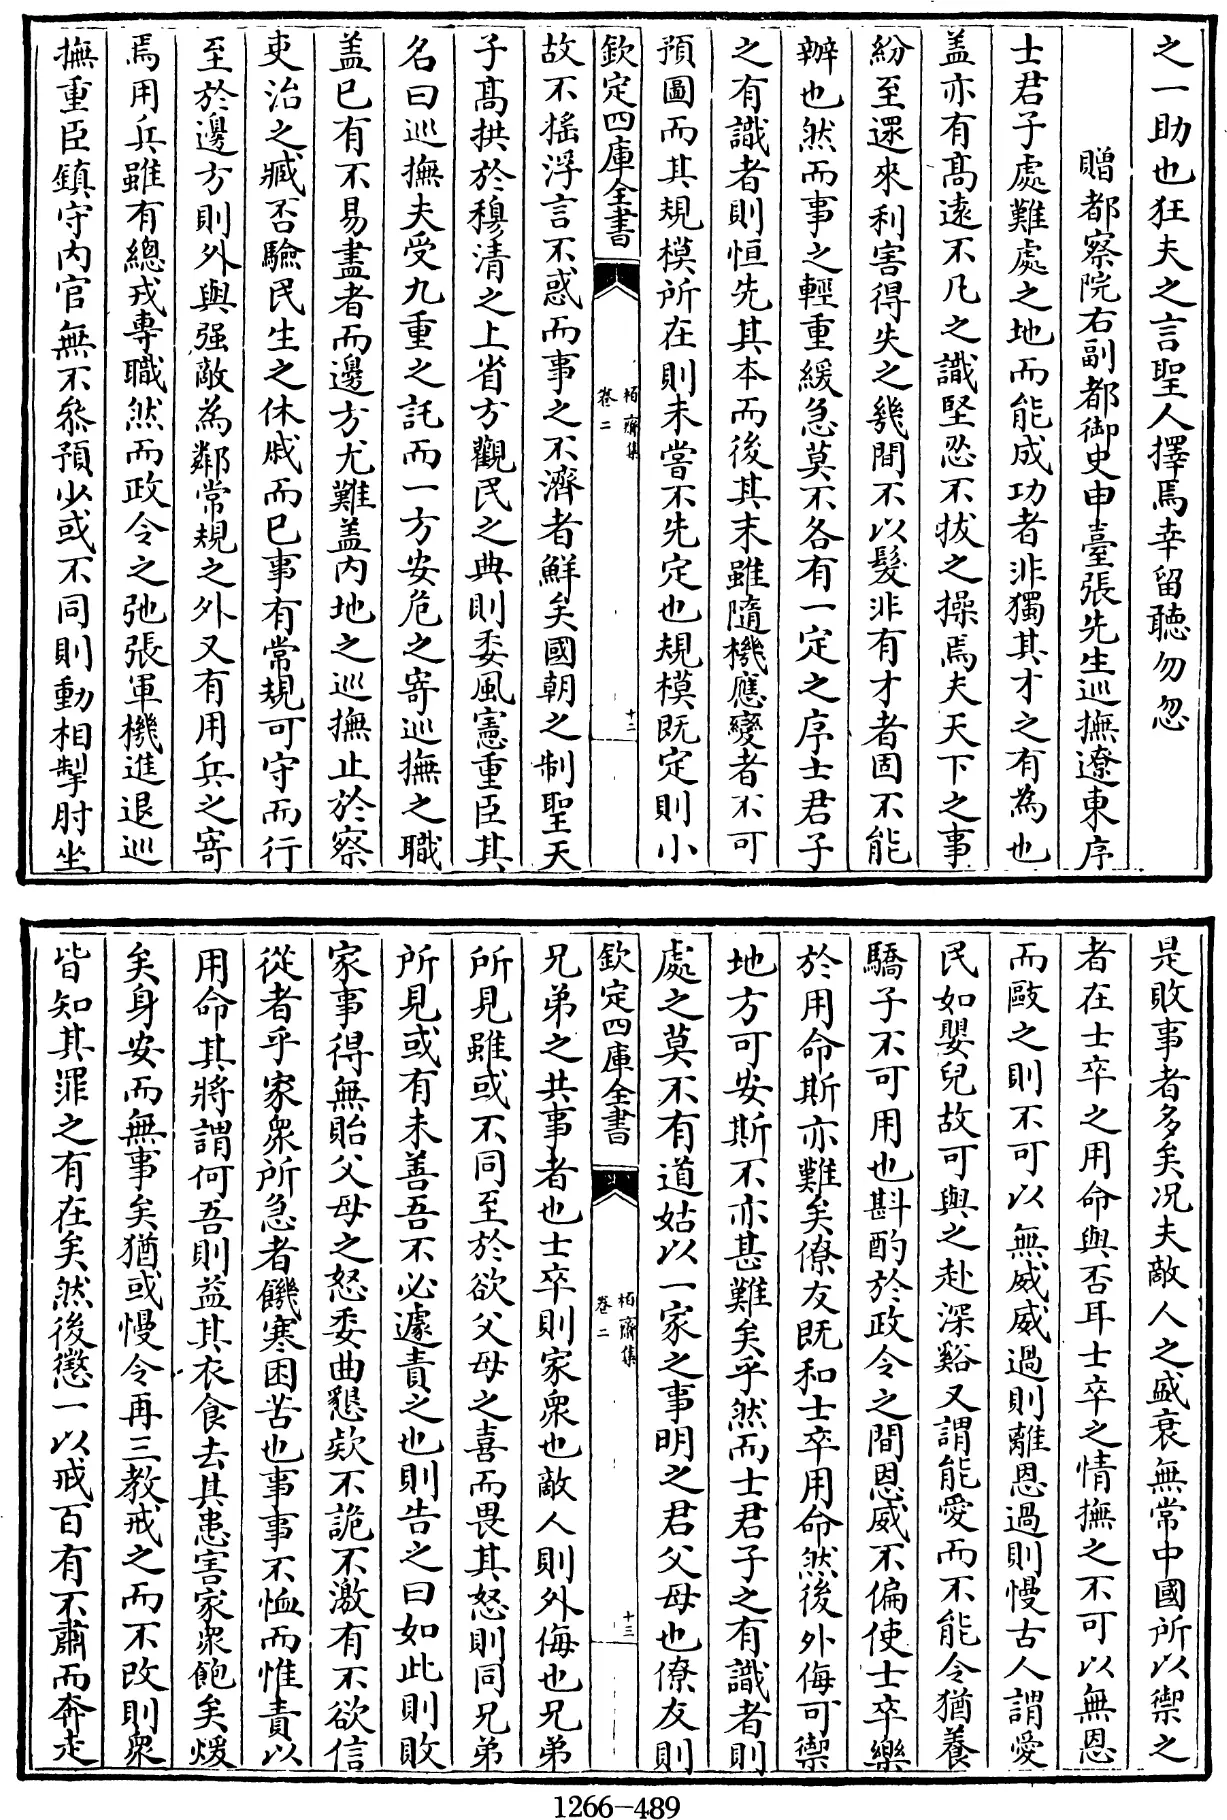 之一助也狂夫之言聖人擇焉幸留聽勿忽
贈都察院右副都御史申臺張先生巡撫遼東序
士君子處難處之地而能成功者非獨其才之有為也
盖亦有高遠不凡之識堅忍不拔之操焉夫天下之事
紛至還來利害得失之幾間不以髮非有才者固不能
辦也然而事之輕重緩急莫不各有一定之序士君子
之有識者則恒先其本而後其末雖隨機應變者不可
預圖而其規模所在則未嘗不先定也規模既定則小
欽定四庫全書
柏齋集
卷二
十二
故不搖浮言不惑而事之不濟者鮮矣國朝之制聖天
子高拱於穆清之上省方觀民之典則委風憲重臣其
名曰巡撫夫受九重之託而一方安危之寄巡撫之職
盖已有不易盡者而邊方尤難盖内地之巡撫止於察
吏治之臧否驗民生之休戚而已事有常規可守而行
至於邊方則外與强敵為鄰常規之外又有用兵之寄
焉用兵雖有總戎專職然而政令之弛張軍機進退巡
撫重臣鎮守内官無不叅預少或不同則動相掣肘坐
是敗事者多矣况夫敵人之盛衰無常中國所以禦之
者在士卒之用命與否耳士卒之情撫之不可以無恩
而毆之則不可以無威威過則離恩過則慢古人謂愛
民如嬰兒故可與之赴深谿又謂能愛而不能令猶養
驕子不可用也斟酌於政令之間恩威不偏使士卒樂
於用命斯亦難矣僚友既和士卒用命然後外侮可禦
地方可安斯不亦甚難矣乎然而士君子之有識者則
處之莫不有道姑以一家之事明之君父母也僚友則
欽定四庫全書
柏齋集
卷二
十三
兄弟之共事者也士卒則家衆也敵人則外侮也兄弟
所見雖或不同至於欲父母之喜而畏其怒則同兄弟
所見或有未善吾不必遽責之也則告之曰如此則敗
家事得無貽父母之怒委曲懇欵不詭不激有不欲信
從者乎家衆所急者饑寒困苦也事事不恤而惟責以
用命其將謂何吾則益其衣食去其患害家衆飽矣煖
矣身安而無事矣猶或慢令再三教戒之而不改則衆
皆知其罪之有在矣然後懲一以戒百有不肅而奔走
1266-489